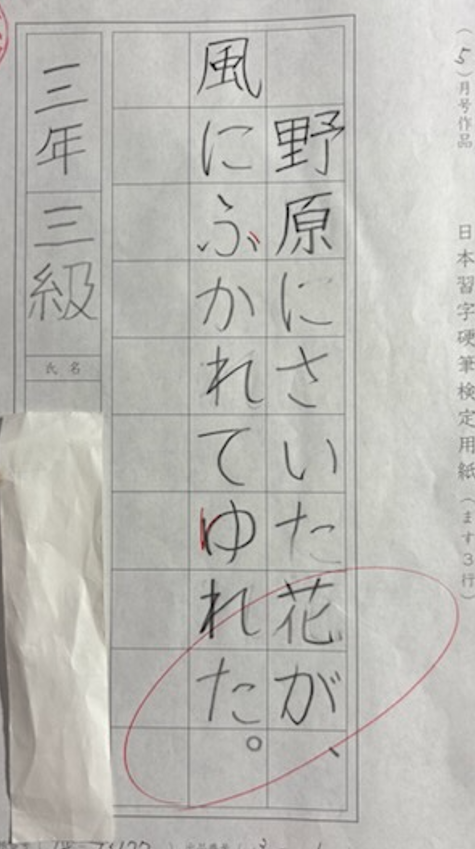 (5)月号作品
日本習字硬筆検定用紙(ます3行)
野原にさいた花が、
風にふかれてゆれた。
三年三級
氏名